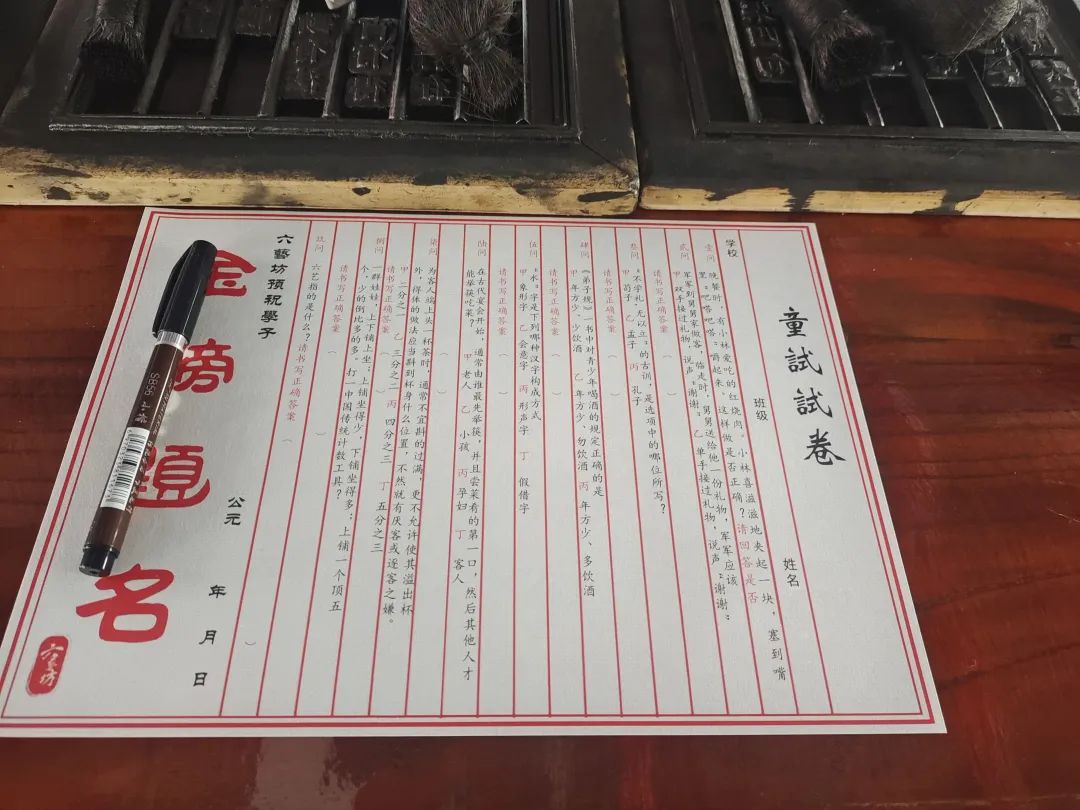 童試試卷
学校 班级 姓名
壹问 晚餐时，有小林爱吃的红烧肉。小林喜滋滋地夹起一块，塞到嘴
里：吧嗒吧嗒：嚼起来、这样做是否正确？请回答是否
贰问 军军到舅舅家做客，临走时，舅舅送给他一份礼物，军军应该
甲 双手接过礼物，说声：谢谢： 乙 单手接过礼物，说声：谢谢：
请书写正确答案（
叁问 “不学礼，无以立：的古训，是选项中的哪位所写？
甲 荀子 乙 孟子 丙 孔子
请书写正确答案（
肆问 《弟子规》一书中对青少年喝酒的规定正确的是
甲 年方少、少饮酒 乙 年方少、勿饮酒 丙 年方少、多饮酒
请书写正确答案（
伍问 “木：字是下列哪种汉字构成方式
甲 象形字 乙 会意字 丙 形声字 丁 假借字
请书写正确答案（
陆问 在古代宴会开始，通常由谁最先举筷，并且尝菜肴的第一口，然后其他人才
能举筷吃菜？ 甲 老人 乙 小孩 丙 孕妇 丁 客人
柒问 为客人端上头一杯茶时，通常不宜斟的过满，更不允许使其溢出杯
外，得体的做法应当斟到杯身什么位置，不然就有厌客或逐客之嫌。
甲 二分之一 乙 三分之二 丙 四分之三 丁 五分之三
请书写正确答案（
捌问 一群娃娃，上下铺上坐；上铺坐得少，下铺坐得多；上铺一个顶五
个，少的倒比多的多。打一中国传统计数工具？
请书写正确答案（
玖问 六艺指的是什么？请书写正确答案（ ）
六藝坊预祝學子
公元 年 月 日
金榜題名
六藝坊
SB56